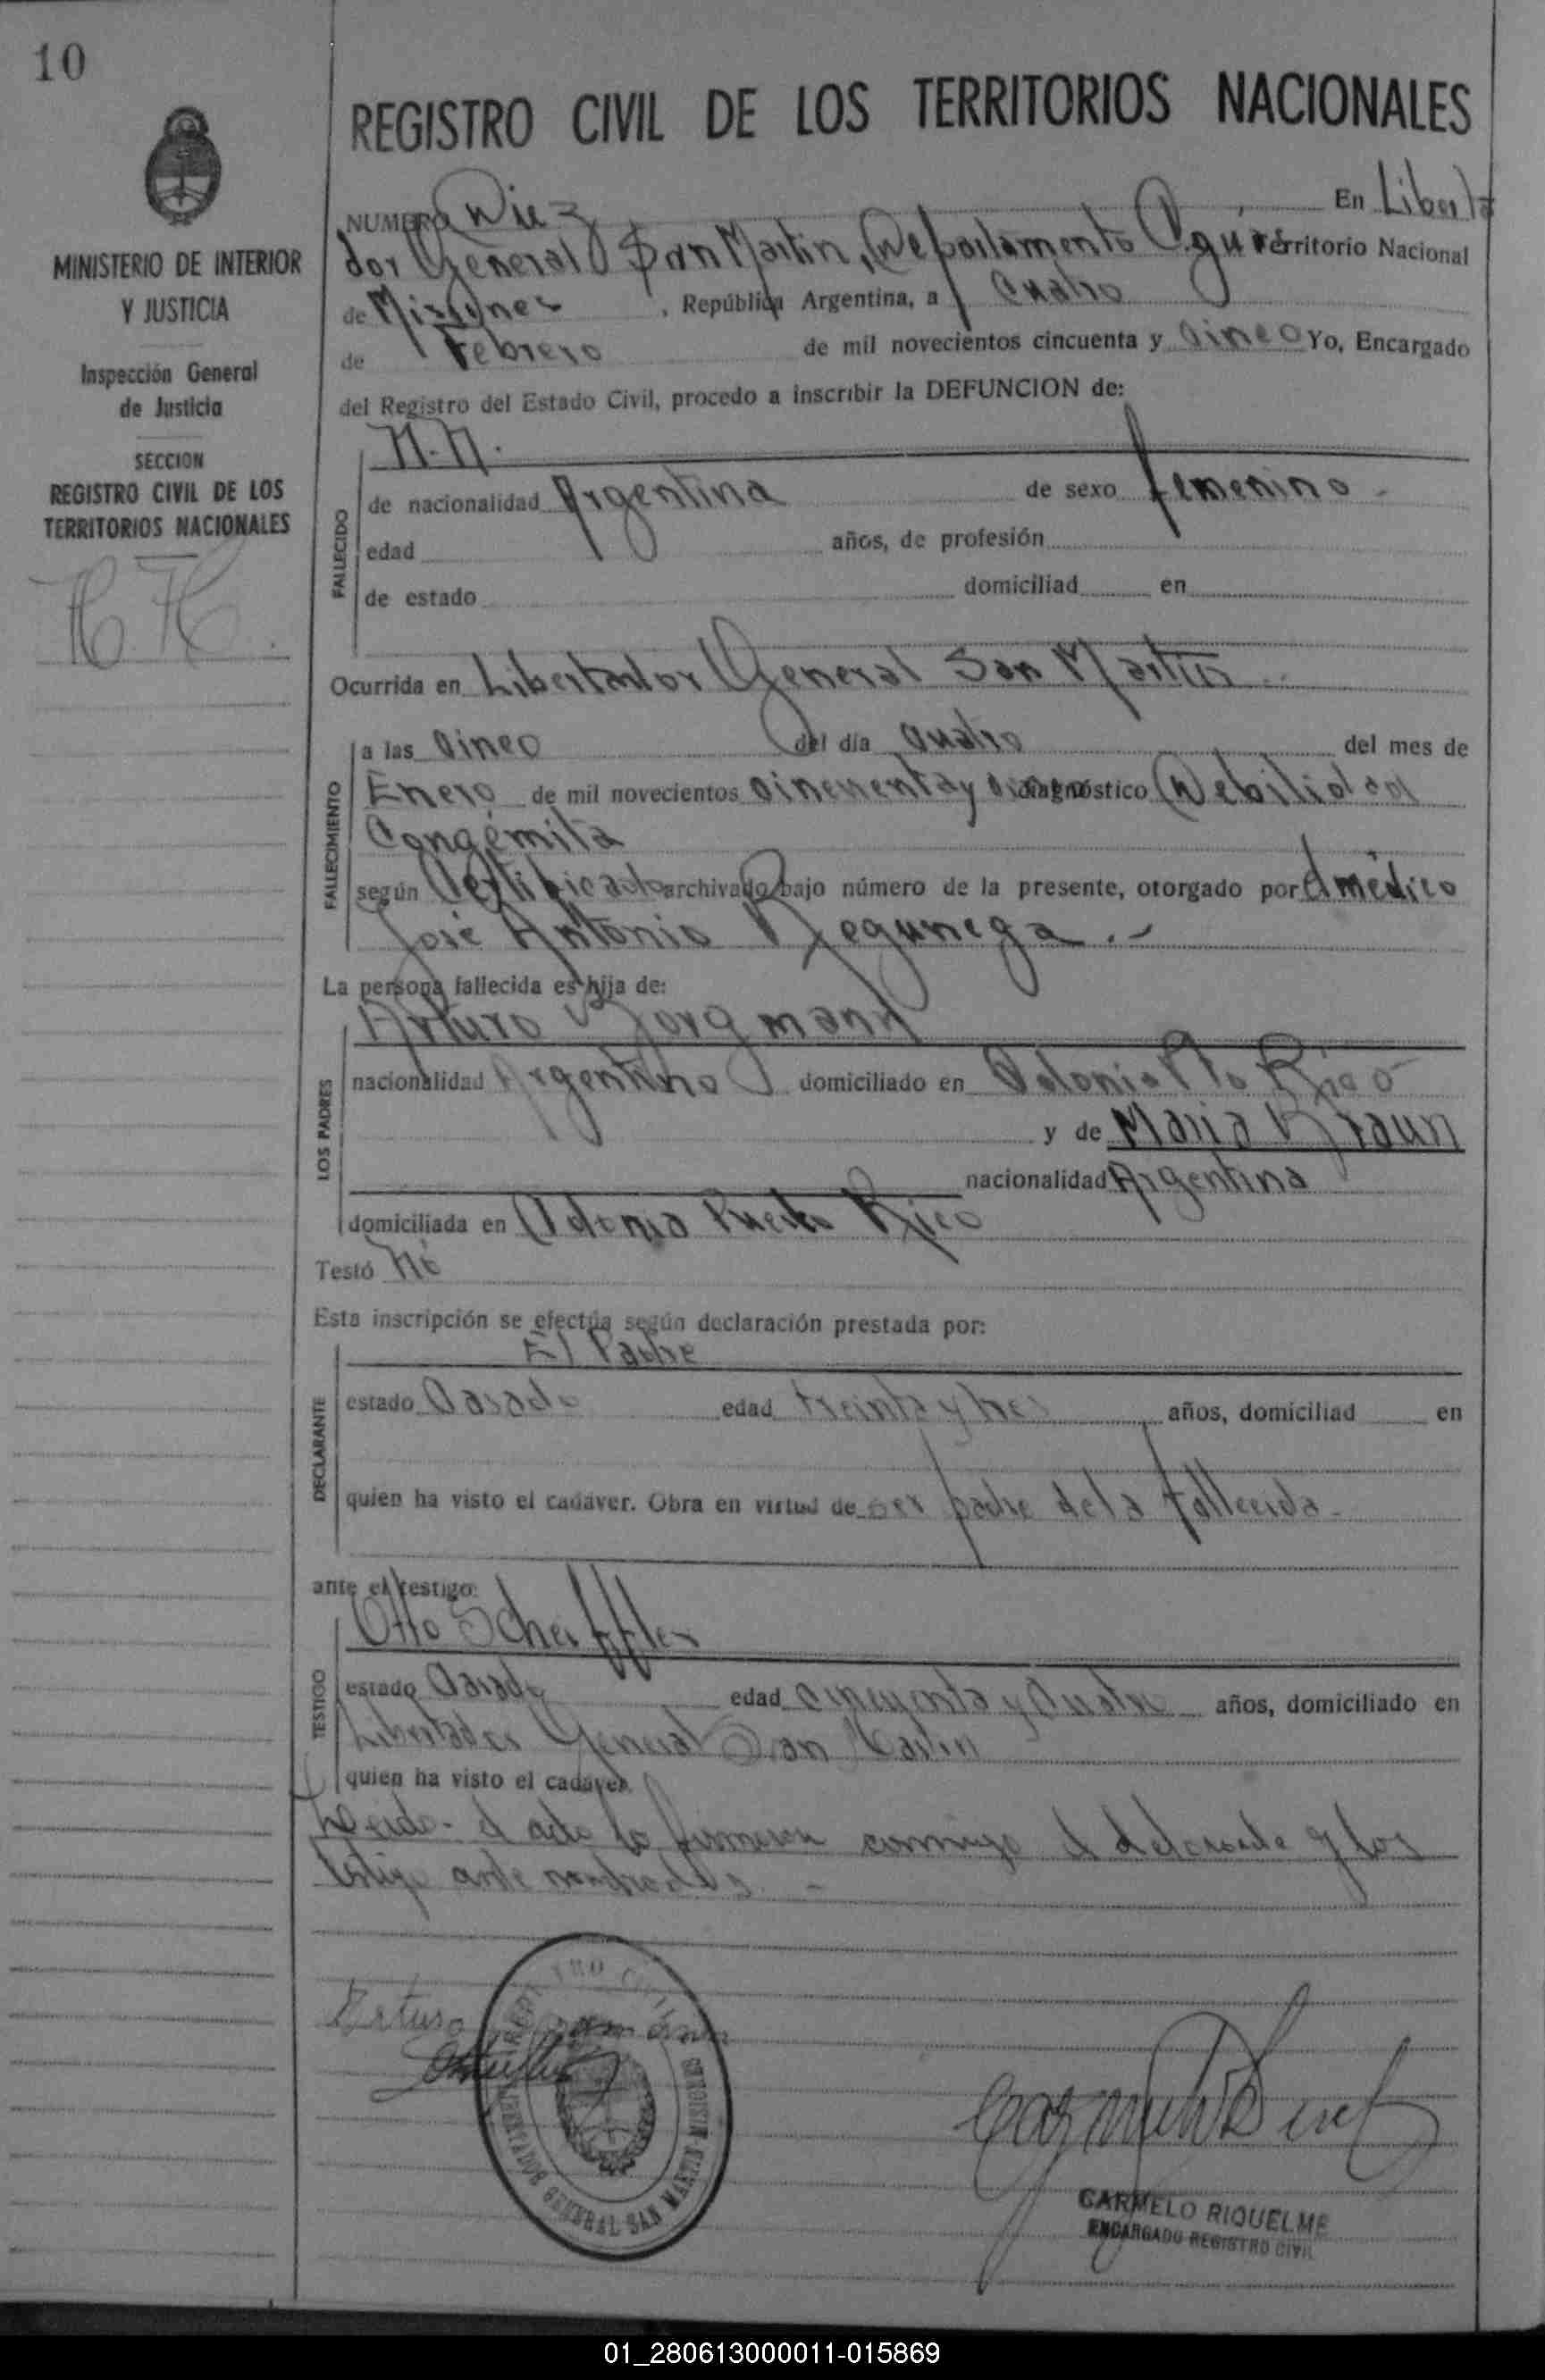 10
REGISTRO CIVIL DE LOS TERRITORIOS NACIONALES
MINISTERIO DE INTERIOR
Y JUSTICIA
Inspección General
de Justicia
SECCION
REGISTRO CIVIL DE LOS
TERRITORIOS NACIONALES
NUMERO Diez En Liberta
dor General San Martin, Departamento Territorio Nacional
de Misiones, República Argentina, a Cuatro
de Febrero de mil novecientos cincuenta y Cinco Yo, Encargado
del Registro del Estado Civil, procedo a inscribir la DEFUNCION de:
N.N.
FALLECIDO
de nacionalidad Argentina de sexo femenino.
edad años, de profesión
de estado domiciliad en
Ocurrida en Libertador General San Martin
FALLECIMIENTO
a las Cinco del día Cuatro del mes de
Enero de mil novecientos Cincuenta y diagnóstico Debilidad
Congémita
según Certificado archivado bajo número de la presente, otorgado por el médico
José Antonio
La persona fallecida es hija de:
LOS PADRES
Arturo Borgmann
nacionalidad Argentino domiciliado en Colonia Pto Rico
y de Maria Braun
nacionalidad Argentina
domiciliada en Colonia Puerto Rico
Testó No
Esta inscripción se efectúa según declaración prestada por:
DECLARANTE
El Padre
estado Casado edad treinta y tres años, domiciliad en
quien ha visto el cadáver. Obra en virtud de ser padre de la fallecida.
ante el testigo:
TESTIGO
Otto Scheiffler
estado Casado edad cincuenta y Cuatro años, domiciliado en
Libertador General San Martin
quien ha visto el cadáver.
Leida el acta la firmaron conmigo el declarante y los
testigo ante nombrados. -
Arturo
REGISTRO CIVIL
LIBERTADOR GENERAL SAN MARTIN MISIONES
CARMELO RIQUELME
ENCARGADO REGISTRO CIVIL
01_280613000011-015869